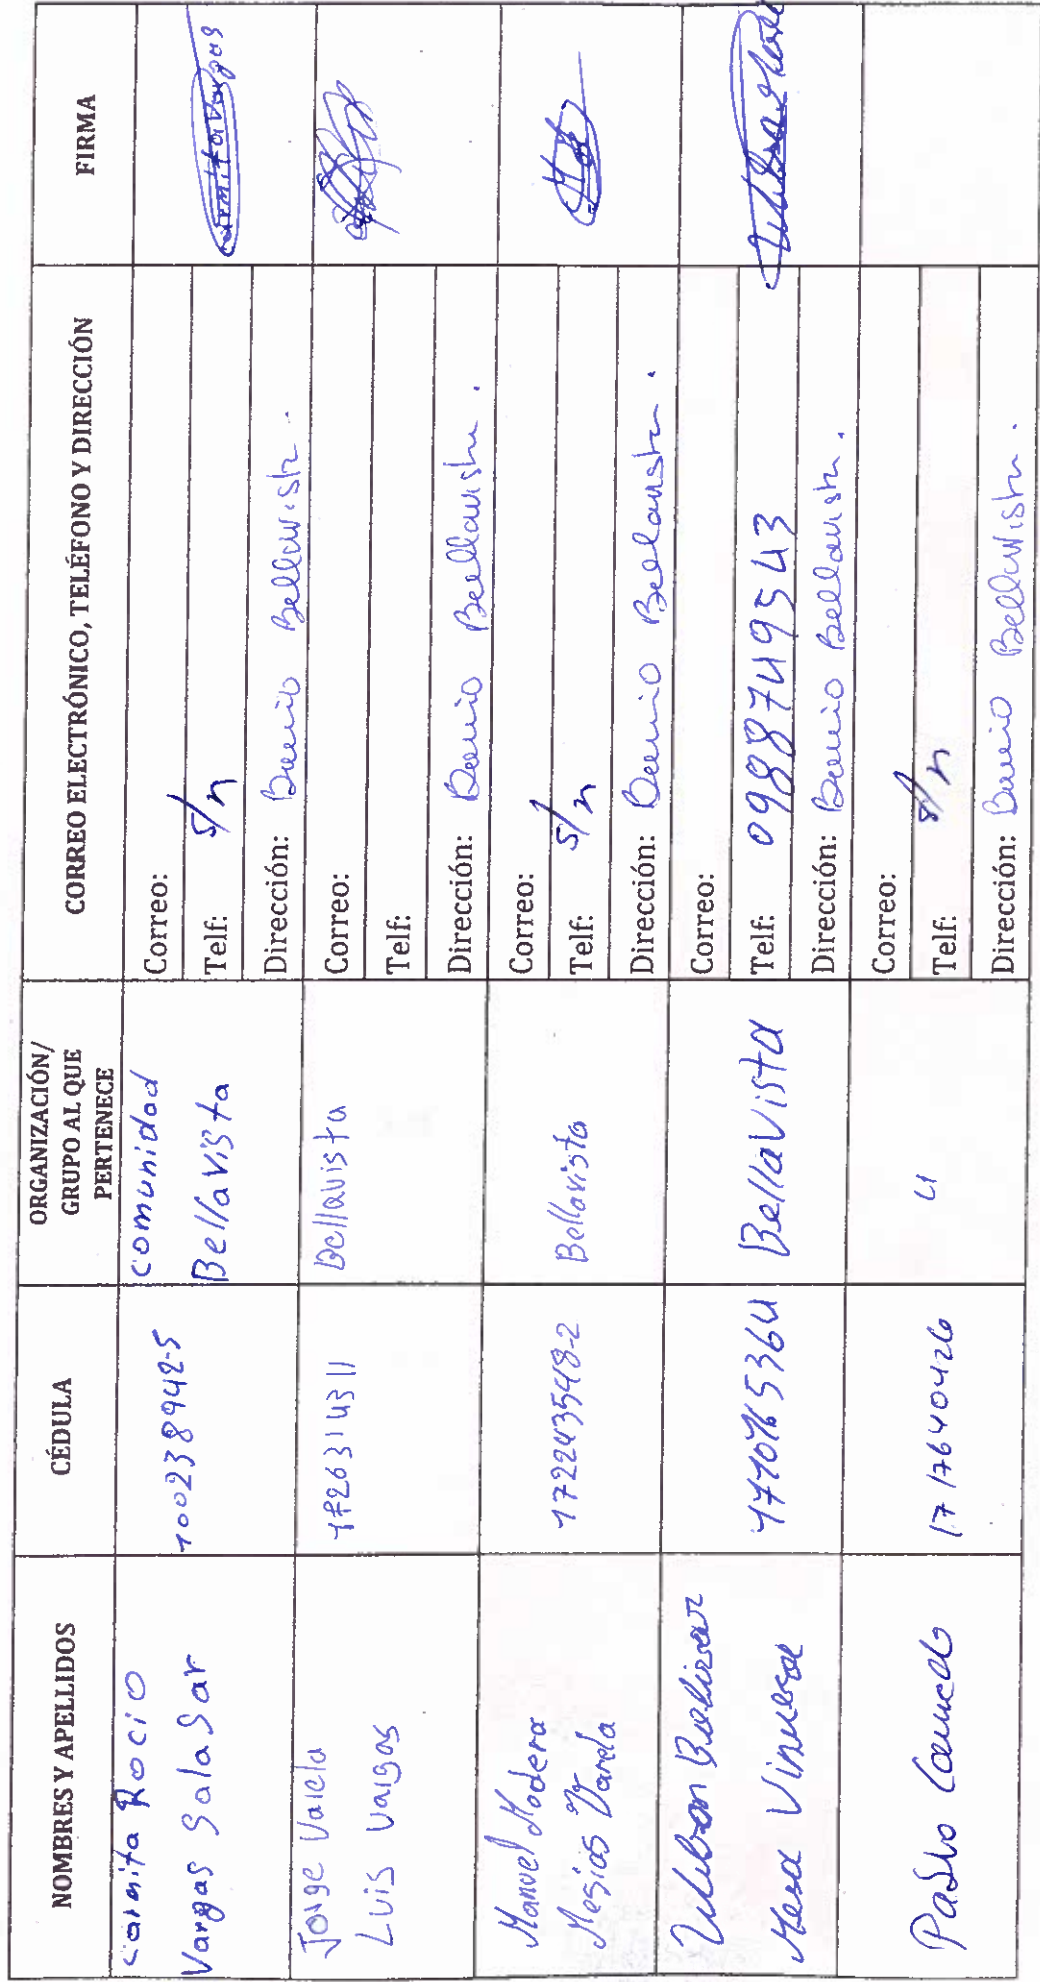 NOMBRES Y APELLIDOS
CÉDULA
ORGANIZACIÓN/
GRUPO AL QUE
PERTENECE
CORREO ELECTRÓNICO, TELÉFONO Y DIRECCIÓN
FIRMA
Carmita Rocio
Vargas Salasar
100238942-5
comunidad
Bellavista
Correo:
Telf: s/n
Dirección: Barrio Bellavista.
Carmita Vargas
Jorge Varela
Luis Vargas
1726314311
Bellavista
Correo:
Telf:
Dirección: Barrio Bellavista.
Manuel Madera
Mesias Varela
172243548-2
Bellavista
Correo:
Telf: s/n
Dirección: Barrio Bellavista.
Bolivar
Mesa Vinueza
Bellavista
Correo:
Telf: 098749543
Dirección: Barrio Bellavista.
Pablo
1717640426
Correo:
Telf: s/n
Dirección: Barrio Bellavista.